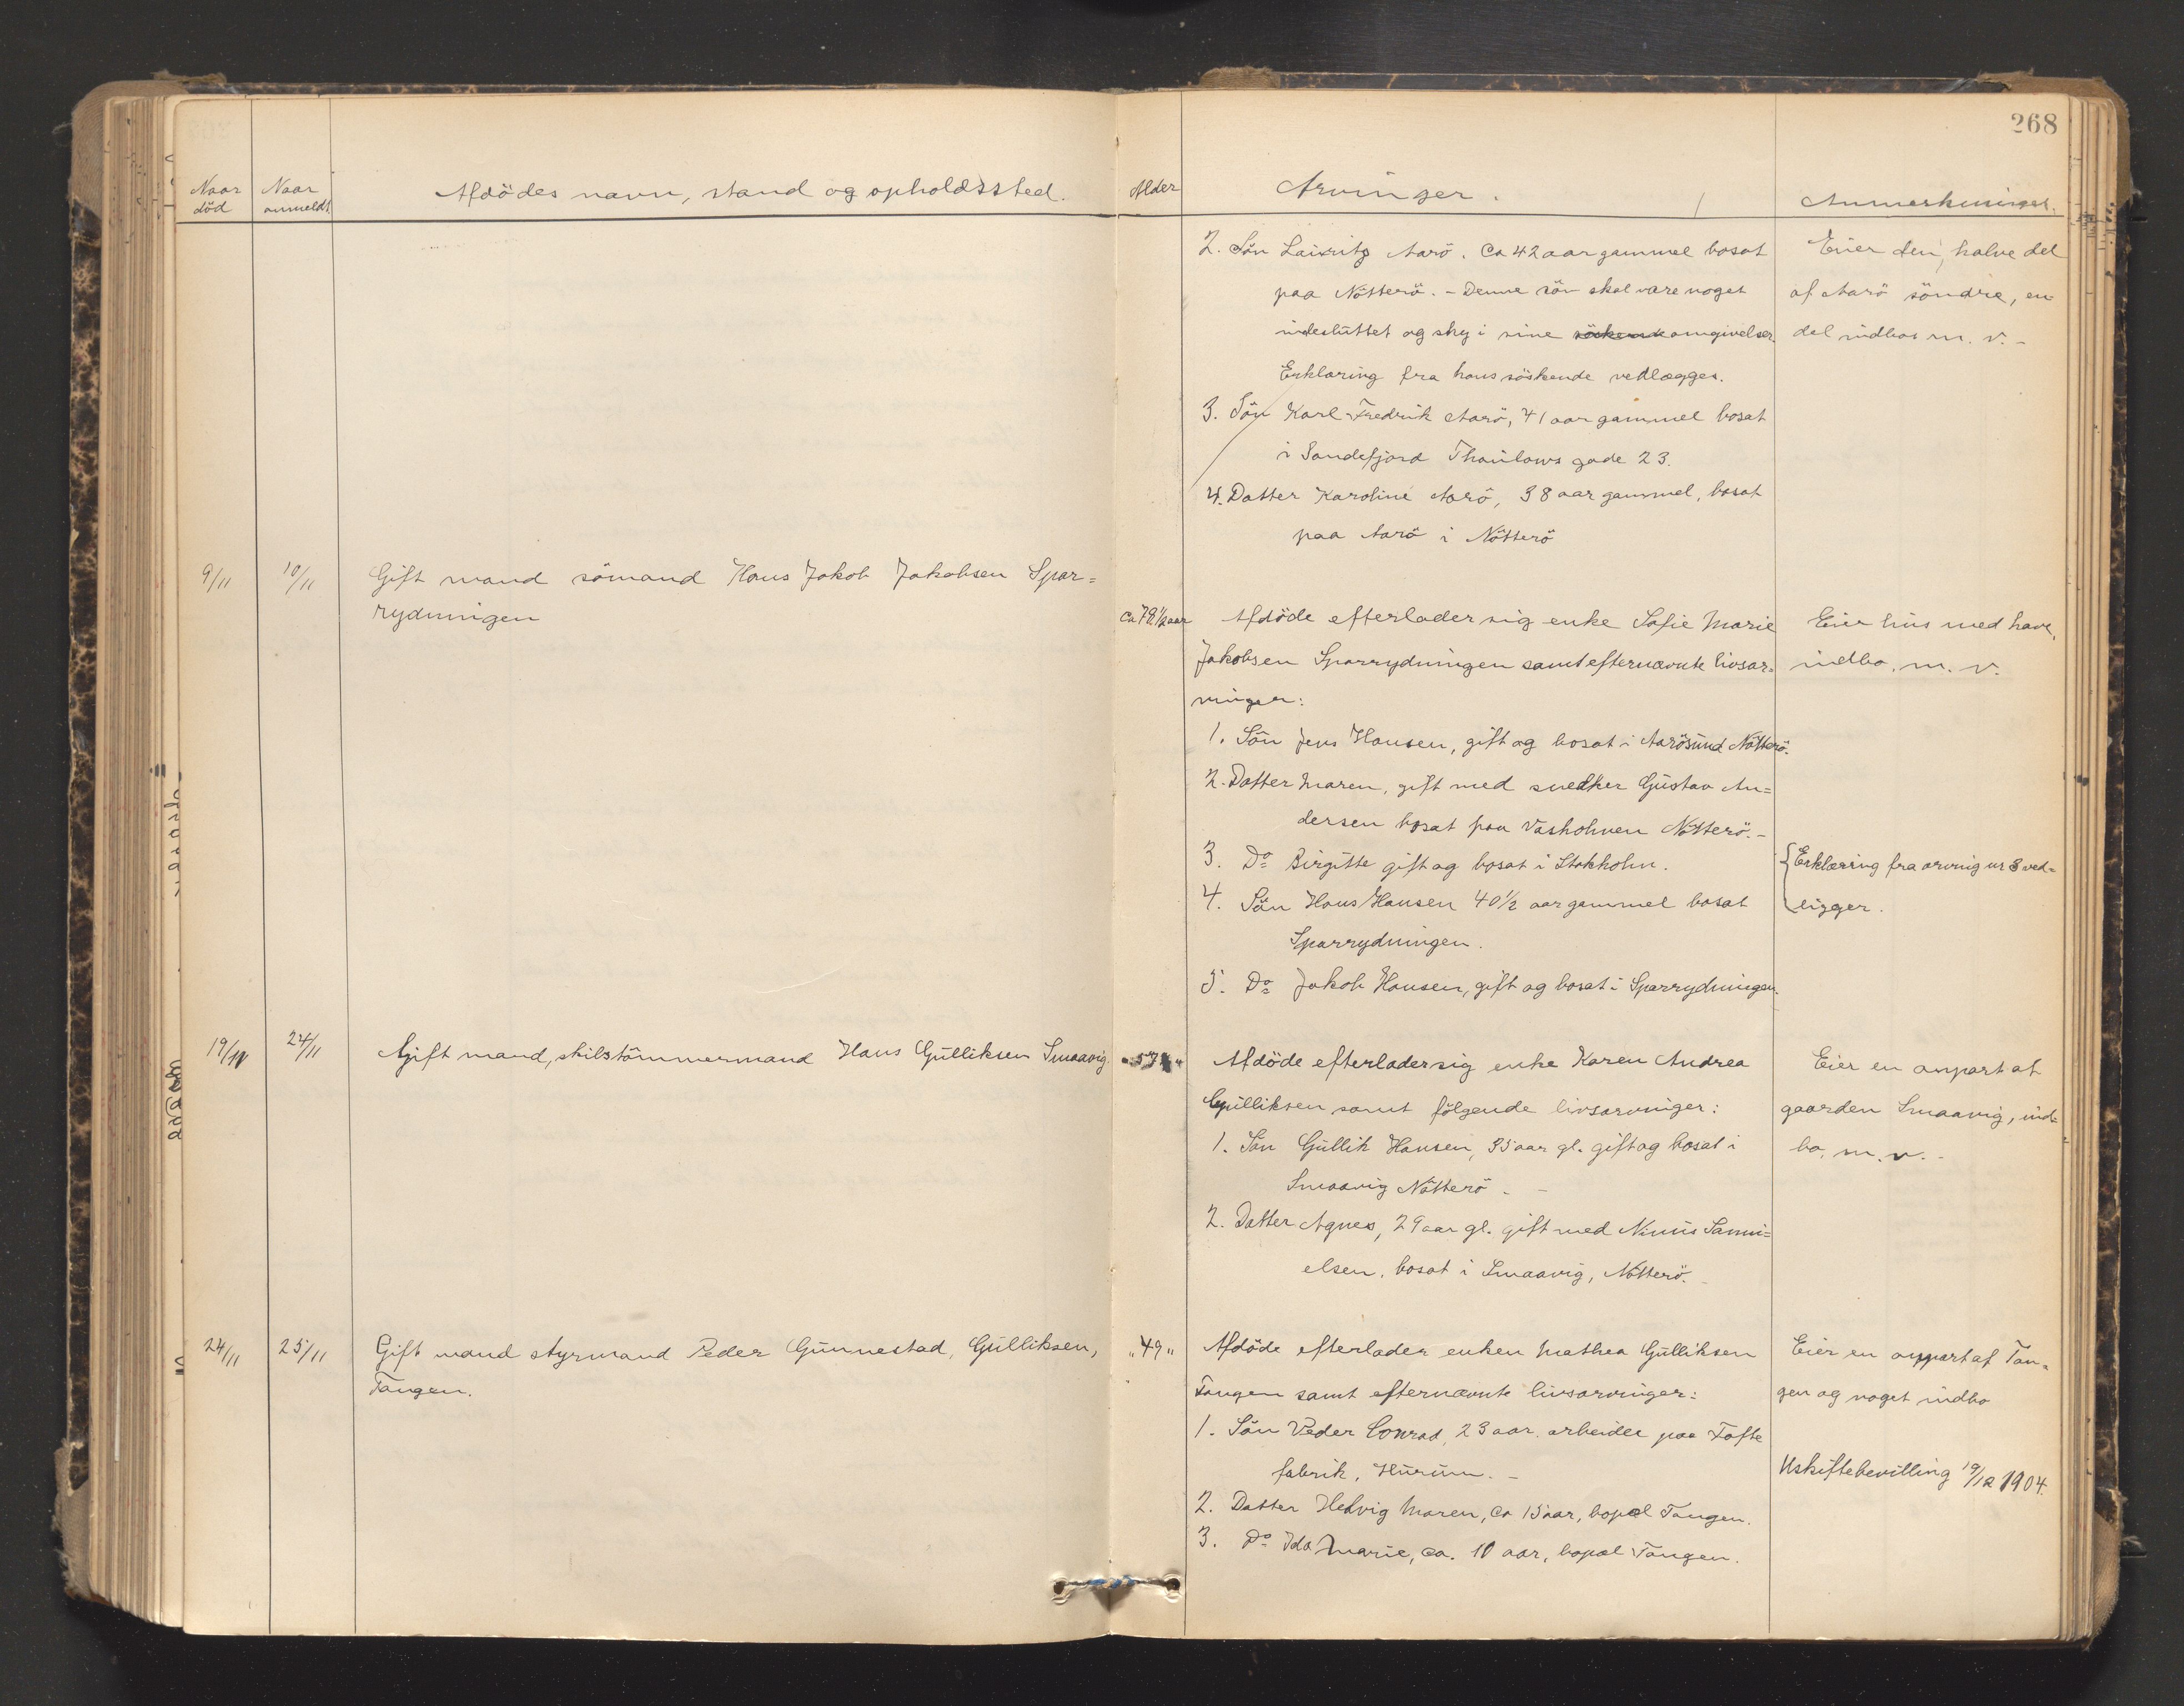 268
Naar død
Naar anmeldt
Afdödes navn, stand og opholdssted.
Alder
Arvinger.
Anmerkninger.
2. Sön Lauritz Aarö. Ca 42 aar gammel bosat
paa Nötterö. - Denne sön skal være noget
indesluttet og sky i sine omgivelser.
Erklæring fra hans söskende vedlægges.
3. Sön Karl Fredrik Aarö, 41 aar gammel bosat
i Sandefjord Thaulows gade 23.
4. Datter Karoline Aarö, 38 aar gammel, bosat
paa Aarö i Nötterö
Eier den halve del
af Aarö söndre, en
del indbo m. v. -
9/11
10/11
Gift mand sömand Hans Jakob Jakobsen Spar=
rydningen
ca 79 1/2 aar
Afdöde efterlader sig enke Sofie Marie
Jakobsen Sparrydningen samt efternævnte livsar=
vinger:
1. Sön Jens Hansen, gift og bosat i Aarösund Nötterö.
2. Datter Maren, gift med snedker Gustav An=
dersen bosat paa Vasholmen Nötterö. -
3. Do Birgitte gift og bosat i Stokholm.
4. Sön Hans Hansen 40 1/2 aar gammel bosat
Sparrydningen.
5. Do Jakob Hansen, gift og bosat i Sparrydningen.
Eier hus med have,
indbo, m. v.
Erklæring fra arving nr 3 ved=
ligger.
19/11
24/11
Gift mand, skibstömmermand Hans Gulliksen Smaavig.
" 57 "
Afdöde efterlader sig enke Karen Andrea
Gulliksen samt fölgende livsarvinger:
1. Sön Gullik Hansen, 35 aar gl. gift og bosat i
Smaavig Nötterö. -
2. Datter Agnes, 29 aar gl. gift med Nimis Samu=
elsen, bosat i Smaavig, Nötterö.
Eier en anpart af
gaarden Smaavig, ind=
bo, m. v. -
24/11
25/11
Gift mand styrmand Peder Gunnestad, Gulliksen,
Tangen.
" 49 "
Afdöde efterlader enken Mathea Gulliksen
Tangen samt efternævnte livsarvinger:
1. Sön Peder Conrad, 23 aar, arbeider paa Tofte
fabrik, Hurum. -
2. Datter Hedvig Maren, ca 15 aar, bopæl Tangen.
3. Do Ida Marie, ca. 10 aar, bopæl Tangen.
Eier en anpart af Tan=
gen og noget indbo
Uskiftebevilling 19/12 1904.